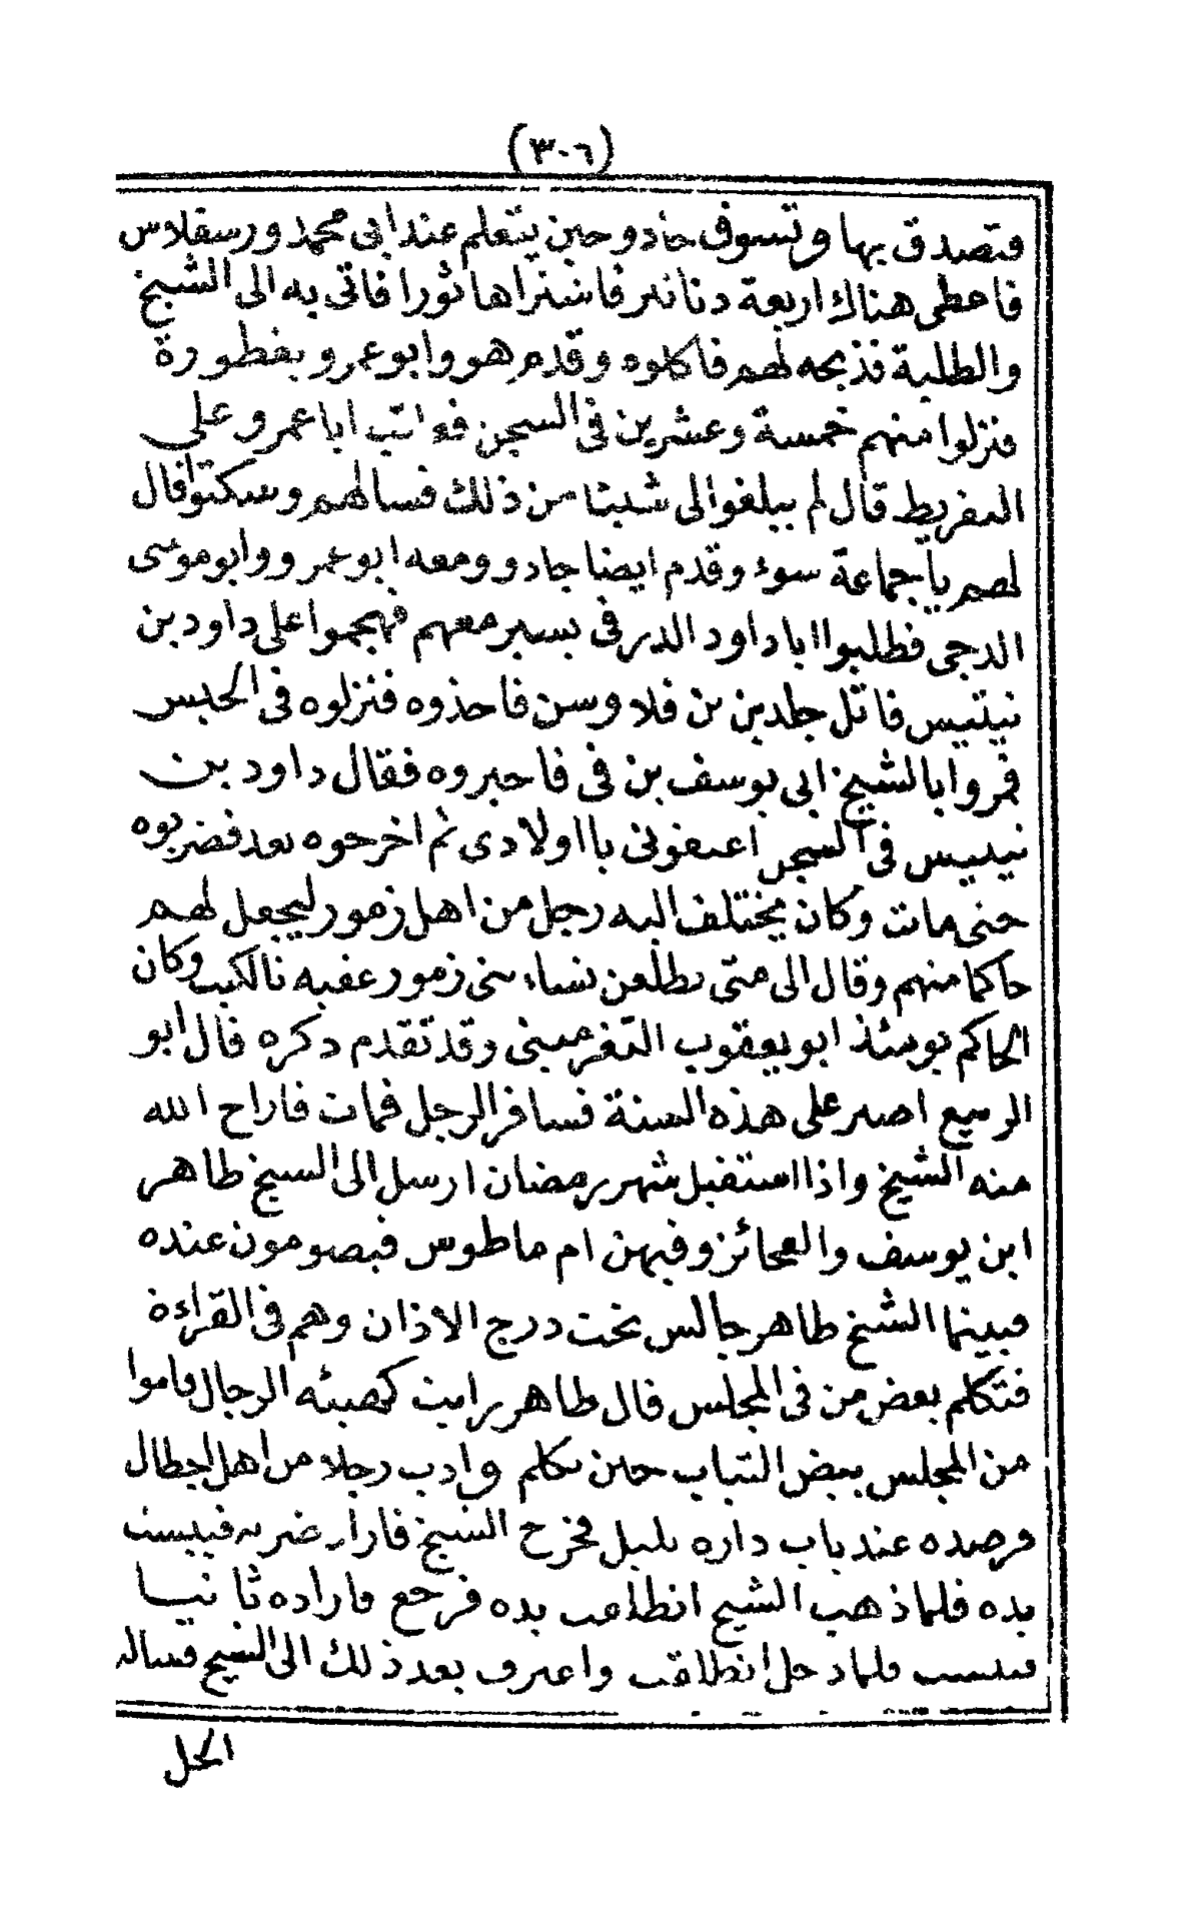 (٣٠٦)
فتصدق بها وتسوف جادو حين يتعلم عند ابى محمد ورسفلاس
فاعطى هناك اربعة دنانير فاشتراها ثورا فاتى به الى الشيخ
والطلبة فذبحه لهم فاكلوه وقدم هو وابو عمرو بغطورة
فنزلوا منهم خمسة وعشرين فى السجن فعاتب ابا عمرو على
التفريط قال لم يبلغوا الى شيئا من ذلك فسالهم وسكتوا فال
لهم ياجماعة سوء وقدم ايضا جادو ومعه ابو عمرو وابو موسى
الدجى فطلبوا ابا داود الدرفى بسير معهم فهجموا على داود بن
نيتيس فاتل جلدين بن فلاوسن فاخذوه فنزلوه فى الحبس
فمروا بالشيخ ابى يوسف بن فى فاخبروه فقال داود بن
نيتيس فى السجن اعيفونى يا اولادى ثم اخرجوه بعد فضربوه
حتى مات وكان يختلف اليه رجل من اهل زمور ليجعل لهم
حاكما منهم وقال الى متى يطلعن نساء بنى زمور عفبه نالكيب وكان
الحاكم يومئذ ابو يعقوب التغرمينى وقد تقدم ذكره فال ابو
الربيع اصبر على هذه السنة فسافر الرجل فمات فاراح الله
منه الشيخ واذا استقبل شهر رمضان ارسل الى الشيخ طاهر
ابن يوسف والعجائز وفيهن ام ماطوس فيصومون عنده
فبينما الشيخ طاهر جالس تحت درج الاذان وهم فى القراءة
فتكلم بعض من فى المجلس فال طاهر رايت كهيئه الرجال قاموا
من المجلس ببعض التباب حين تكلم وادب رجلا من اهل اجطال
فرصده عند باب داره بليل فخرج الشيخ فاراد ضربه فيبست
يده فلما ذهب الشيخ انطلعت يده فرجع فاراده ثانيا
فيبست فلما دخل انطلاقت واعترف بعد ذلك الى الشيخ فساله
الحل